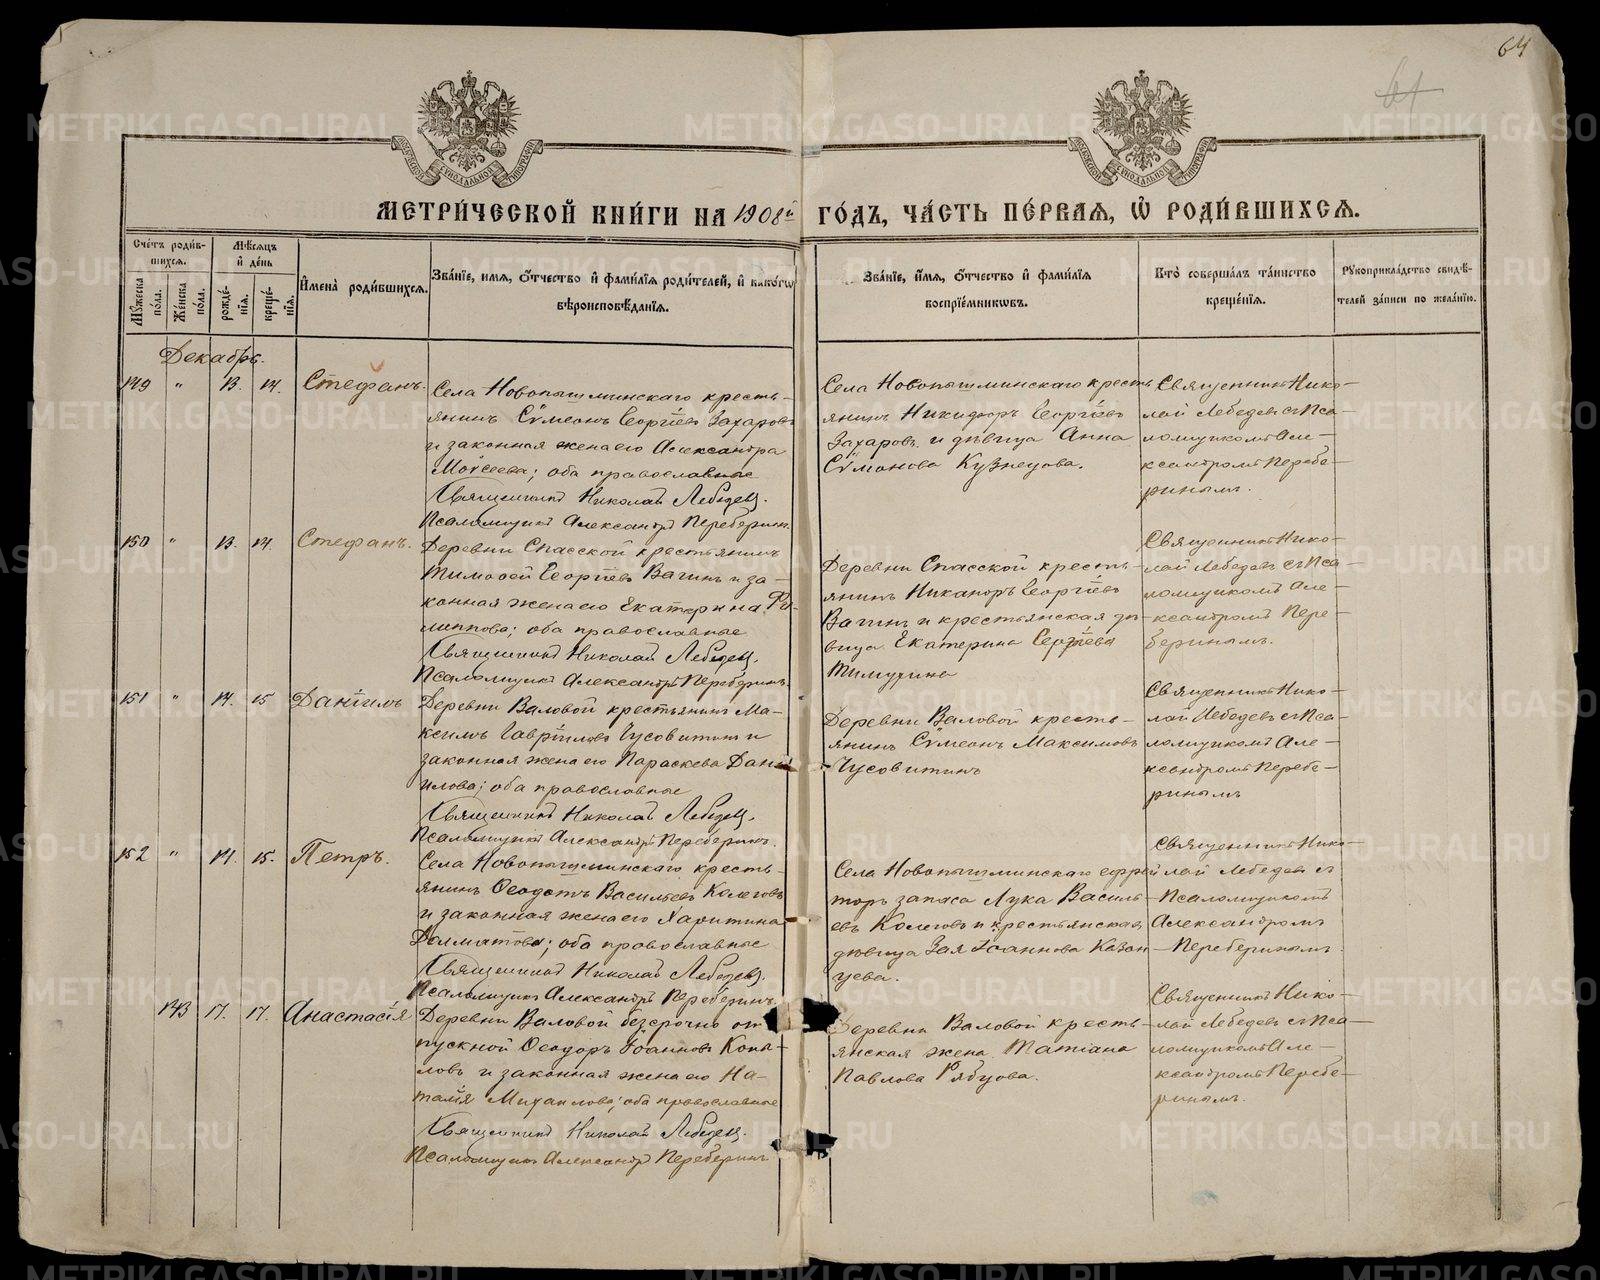 64
61
МОСКОВСКОЙ СѴНОДАЛЬНОЙ ТИПОГРАФІИ
МОСКОВСКОЙ СѴНОДАЛЬНОЙ ТИПОГРАФІИ
МЕТРИ́ЧЕСКОЙ КНИ́ГИ НА 1908й ГО́ДЪ, ЧА́СТЬ ПЕ́РВАЯ, Ѡ҆ РОДИ́ВШИХСЯ.
Сче́тъ роди́в-
шихся.
Мꙋ́жеска по́ла.
Же́нска по́ла.
Мѣ́сяцъ и҆ де́нь
рожде́-нїѧ.
креще́-нїѧ.
И҆мена̀ роди́вшихся.
Зва́нїе, имя, ѻ҆́тчество и҆ фами́лїѧ роди́телей, и҆ како́гѡ
вѣроисповѣ́данїѧ.
Зва́нїе, и҆́мя, ѻ҆́тчество и҆ фами́лїѧ
воспрїе́мникѡвъ.
Кто̀ соверша́лъ та́инство
креще́нїѧ.
Рꙋкоприкла́дство свидѣ́-
телей за́писи по жела́нїю.
Декабрь.
149 " 13. 14. Стефанъ.
Села Новопышминскаго кресть-
янинъ Сѵмеонъ Георгіевъ Захаровъ
и законная жена его Александра
Моѵсеева; оба православные
Священникъ Николай Лебедевъ.
Псаломщикъ Александръ Переберинъ.
Села Новопышминскаго кресть
янинъ Никифоръ Георгіевъ
Захаровъ и дѣвица Анна
Сѵмонова Кузнецова.
Священникъ Нико-
лай Лебедевъ съ Пса-
ломщикомъ Але-
ксандромъ Перебе-
ринымъ.
150 " 13. 14. Стефанъ.
Деревни Спасской крестьянинъ
Тимофей Георгіевъ Вагинъ и за-
конная жена его Екатерина Фи-
липпова; оба православные
Священникъ Николай Лебедевъ.
Псаломщикъ Александръ Переберинъ.
Деревни Спасской кресть-
янинъ Никаноръ Георгіевъ
Вагинъ и крестьянская дѣ-
вица Екатерина Сергѣева
Священникъ Нико-
лай Лебедевъ съ Пса-
ломщикомъ Але-
ксандромъ Пере-
беринымъ.
151 " 14. 15 Даніилъ
Деревни Валовой крестьянинъ Ма-
ксимъ Гавріиловъ Чусовитинъ и
законная жена его Параскева Дані-
илова; оба православные
Священникъ Николай Лебедевъ.
Псаломщикъ Александръ Переберинъ.
Деревни Валовой кресть-
янинъ Сѵмеонъ Максимовъ
Чусовитинъ
Священникъ Нико-
лай Лебедевъ съ Пса-
ломщикомъ Але-
ксандромъ Перебе-
ринымъ
152 " 14. 15. Петръ.
Села Новопышминскаго кресть-
янинъ Ѳеодотъ Васильевъ Колеговъ
и законная жена его Харитина
Далматова; оба православные
Священникъ Николай Лебедевъ.
Псаломщикъ Александръ Переберинъ.
Села Новопышминскаго ефрей
торъ запаса Лука Василь-
евъ Колеговъ и крестьянская
дѣвица Зая Іоаннова Казан
цева.
Священникъ Нико-
лай Лебедевъ съ
Псаломщикомъ
Александромъ
Переберинымъ
143 17. 17. Анастасія
Деревни Валовой безсрочно от
пускной Ѳеодоръ Іоанновъ Копы-
ловъ и законная жена его На-
талія Михаилова; оба православные
Священникъ Николай Лебедевъ.
Псаломщикъ Александръ Переберинъ
Деревни Валовой кресть-
янская жена Татіана
Павлова Рябцова.
Священникъ Нико-
лай Лебедевъ съ Пса-
ломщикомъ Але-
ксандромъ Перебе-
ринымъ.
METRIKI.GASO-URAL.RU